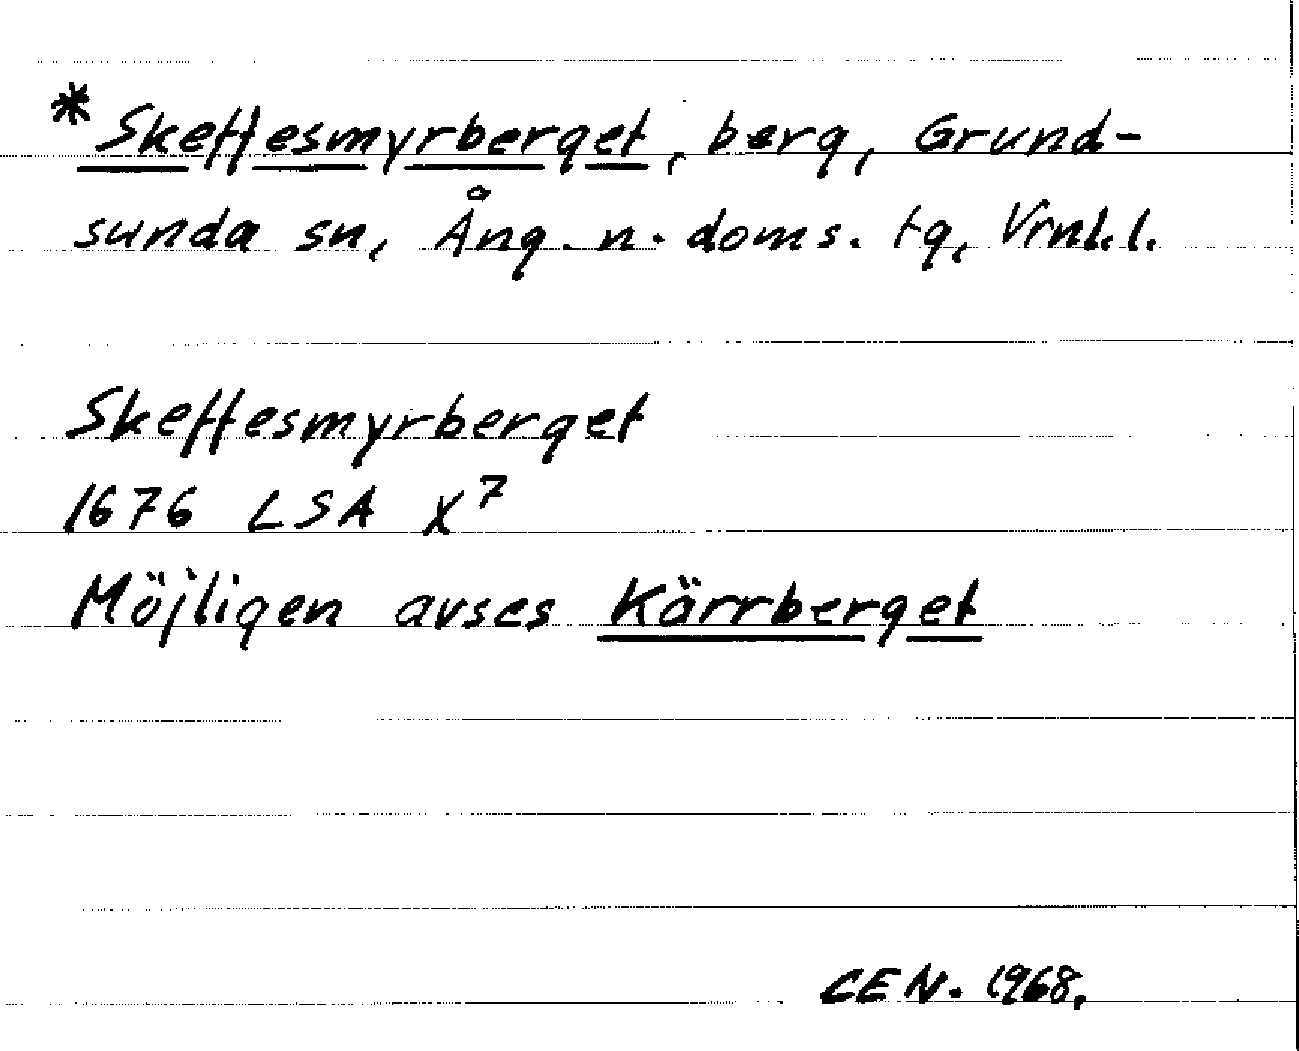 *Skeffesmyrberget, berg, Grund-
sunda sn, Ång. n. doms. tg, Vrnl.l.
Skeffesmyrberget
1676 LSA X7
Möjligen avses Kärrberget
CEN. 1968.